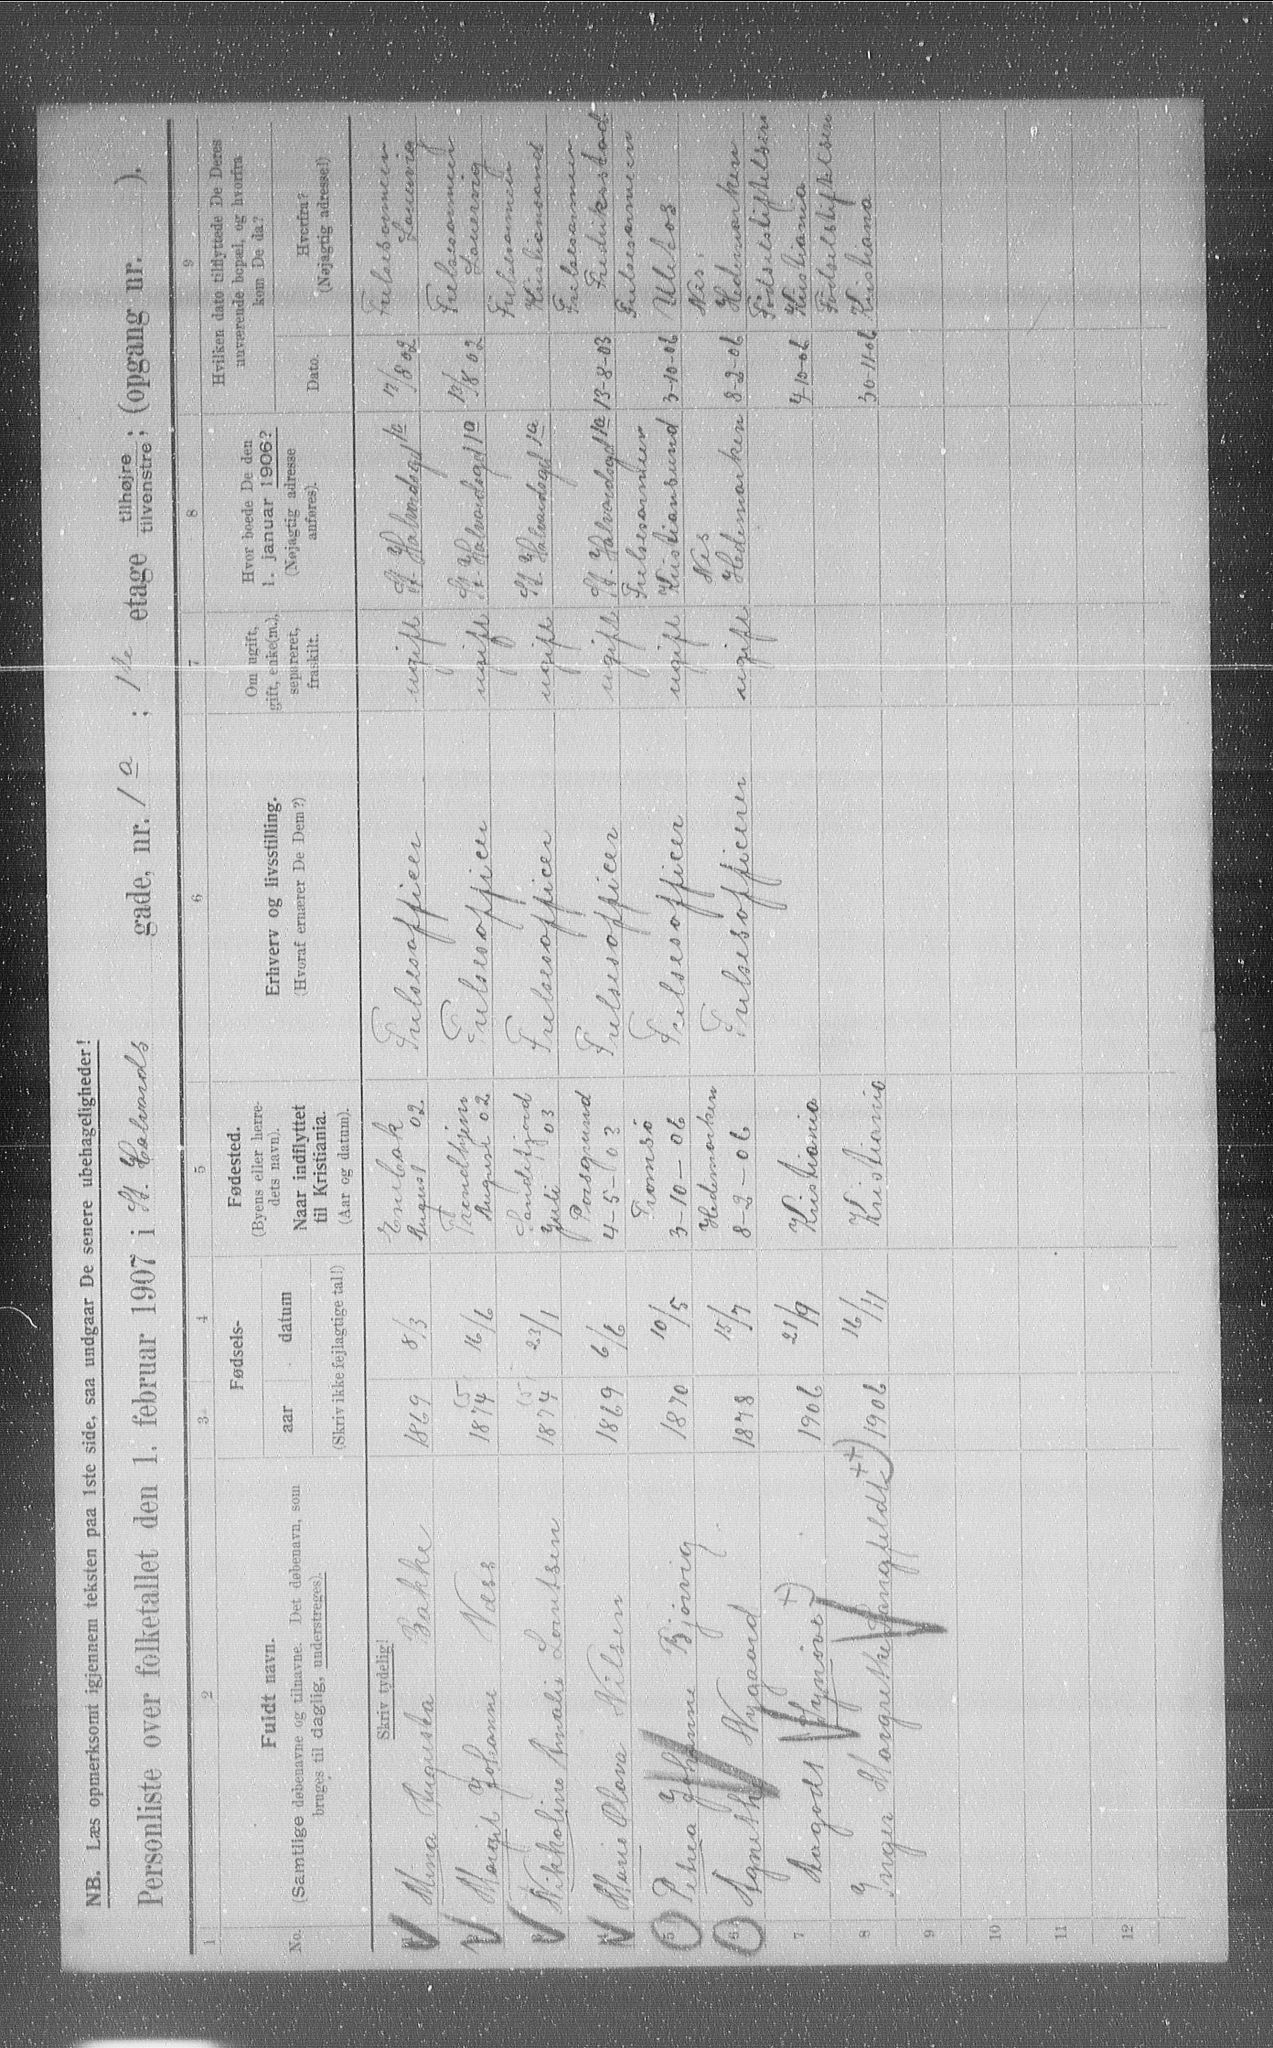 NB. Læs opmerksomt igjennem teksten paa 1ste side, saa undgaar De senere ubehageligheder!
Personliste over folketallet den 1. februar 1907 i St. Halvards gade, nr. 1 a ; 1ste etage tilhøjre tilvenstre; (opgang nr. ).
1 2 3 4 5 6 7 8 9
No.
Fuldt navn.
(Samtlige døbenavne og tilnavne. Det døbenavn, som
bruges til daglig, understreges).
Skriv tydelig!
Fødsels-
aar datum
(Skriv ikke fejlagtige tal!)
Fødested.
(Byens eller herre-
dets navn).
Naar indflyttet
til Kristiania.
(Aar og datum).
Erhverv og livsstilling.
(Hvoraf ernærer De Dem?)
Om ugift,
gift, enke(m.),
separeret,
fraskilt.
Hvor boede De den
1. januar 1906?
(Nøjagtig adresse
anføres).
Hvilken dato tilflyttede De Deres
nuværende bopæl, og hvorfra
kom De da?
Dato.
Hvorfra?
(Nøjagtig adresse!)
Mina Augusta Bakke 1869 8/3 Enebak August 02 Frelsesofficer ugift St. Halvardsgd 1a 12/8 02 Frelsesarmeen Laurvig
Margit Johanne Næss 1874 16/6 Trondhjem August 02 Frelsesofficer ugift St. Halvardsgd 1a 12/8 02 Frelsesarmeen Laurvig
Nikoline Amalie Lauritsen 1874 23/1 Sandefjord Juli 03 Frelsesofficer ugift St. Halvardsgd 1a Frelsesarmeen Kristianssand
Marie Olava Nilsen 1869 6/6 Porsgrund 4-5-03 Frelsesofficer ugift St. Halvardsgd 11a 13-8-03 Frelsesarmeen Fredrikstad
5 Petrea Johanne Bjørvig 1870 10/5 Tromsø 3-10-06 Frelsesofficer ugift Frelsesarmeen Kristiansund 3-10-06 Frelsesarmeen Ulefos
6 Agnethe Nygaard 1878 15/7 Hedemarken 8-2-06 Frelsesofficerer ugift Næs Hedemarken 8-2-06 Næs. Hedemarken
7 Aagodt Synøve +) 1906 21/9 Kristiania 4-10-06 Fødselsstiftelsen Kristiania
8 Inga Margrethe Langfeldt ++) 1906 16/11 Kristiania 30-11-06 Fødselsstiftelsen Kristiana
9
10
11
12